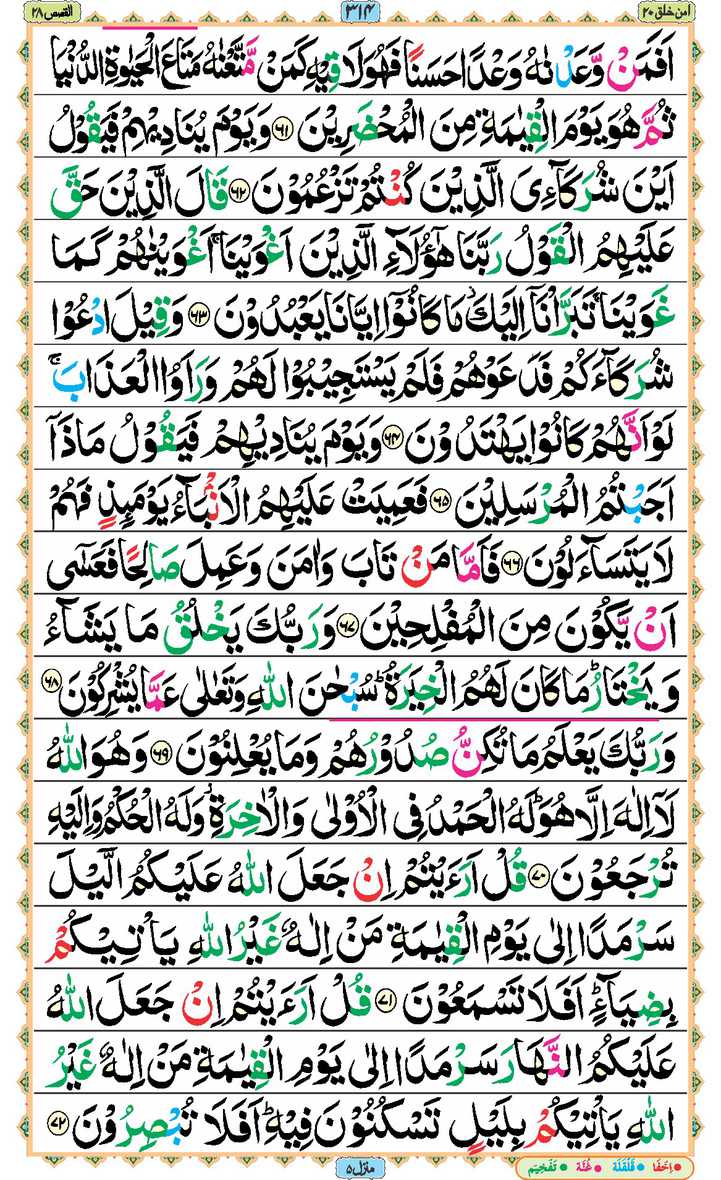 امن خلق ۲۰ ۳۱۴ القصص ۲۸
اَفَمَنْ وَّعَدْنٰهُ وَعْدًا حَسَنًا فَهُوَ لَاقِيْهِ كَمَنْ مَّتَّعْنٰهُ مَتَاعَ الْحَيٰوةِ الدُّنْيَا
ثُمَّ هُوَ يَوْمَ الْقِيٰمَةِ مِنَ الْمُحْضَرِيْنَ ۶۱ وَيَوْمَ يُنَادِيْهِمْ فَيَقُوْلُ
اَيْنَ شُرَكَآءِىَ الَّذِيْنَ كُنْتُمْ تَزْعُمُوْنَ ۶۲ قَالَ الَّذِيْنَ حَقَّ
عَلَيْهِمُ الْقَوْلُ رَبَّنَا هٰٓؤُلَآءِ الَّذِيْنَ اَغْوَيْنَا ۚ اَغْوَيْنٰهُمْ كَمَا
غَوَيْنَا ۚ تَبَرَّاْنَآ اِلَيْكَ مَا كَانُوْٓا اِيَّانَا يَعْبُدُوْنَ ۶۳ وَقِيْلَ ادْعُوْا
شُرَكَآءَكُمْ فَدَعَوْهُمْ فَلَمْ يَسْتَجِيْبُوْا لَهُمْ وَرَاَوُا الْعَذَابَ ۚ
لَوْ اَنَّهُمْ كَانُوْا يَهْتَدُوْنَ ۶۴ وَيَوْمَ يُنَادِيْهِمْ فَيَقُوْلُ مَاذَآ
اَجَبْتُمُ الْمُرْسَلِيْنَ ۶۵ فَعَمِيَتْ عَلَيْهِمُ الْاَنْۢبَآءُ يَوْمَئِذٍ فَهُمْ
لَا يَتَسَآءَلُوْنَ ۶۶ فَاَمَّا مَنْ تَابَ وَاٰمَنَ وَعَمِلَ صَالِحًا فَعَسٰٓى
اَنْ يَّكُوْنَ مِنَ الْمُفْلِحِيْنَ ۶۷ وَرَبُّكَ يَخْلُقُ مَا يَشَآءُ
وَيَخْتَارُ ؕ مَا كَانَ لَهُمُ الْخِيَرَةُ ؕ سُبْحٰنَ اللّٰهِ وَتَعٰلٰى عَمَّا يُشْرِكُوْنَ ۶۸
وَرَبُّكَ يَعْلَمُ مَا تُكِنُّ صُدُوْرُهُمْ وَمَا يُعْلِنُوْنَ ۶۹ وَهُوَ اللّٰهُ
لَآ اِلٰهَ اِلَّا هُوَ ؕ لَهُ الْحَمْدُ فِى الْاُوْلٰى وَالْاٰخِرَةِ ؗ وَلَهُ الْحُكْمُ وَاِلَيْهِ
تُرْجَعُوْنَ ۷۰ قُلْ اَرَءَيْتُمْ اِنْ جَعَلَ اللّٰهُ عَلَيْكُمُ الَّيْلَ
سَرْمَدًا اِلٰى يَوْمِ الْقِيٰمَةِ مَنْ اِلٰهٌ غَيْرُ اللّٰهِ يَاْتِيْكُمْ
بِضِيَآءٍ ؕ اَفَلَا تَسْمَعُوْنَ ۷۱ قُلْ اَرَءَيْتُمْ اِنْ جَعَلَ اللّٰهُ
عَلَيْكُمُ النَّهَارَ سَرْمَدًا اِلٰى يَوْمِ الْقِيٰمَةِ مَنْ اِلٰهٌ غَيْرُ
اللّٰهِ يَاْتِيْكُمْ بِلَيْلٍ تَسْكُنُوْنَ فِيْهِ ؕ اَفَلَا تُبْصِرُوْنَ ۷۲
منزل ۵ اِخفَا قَلْقَلَة غُنَّة تَفْخِيْم